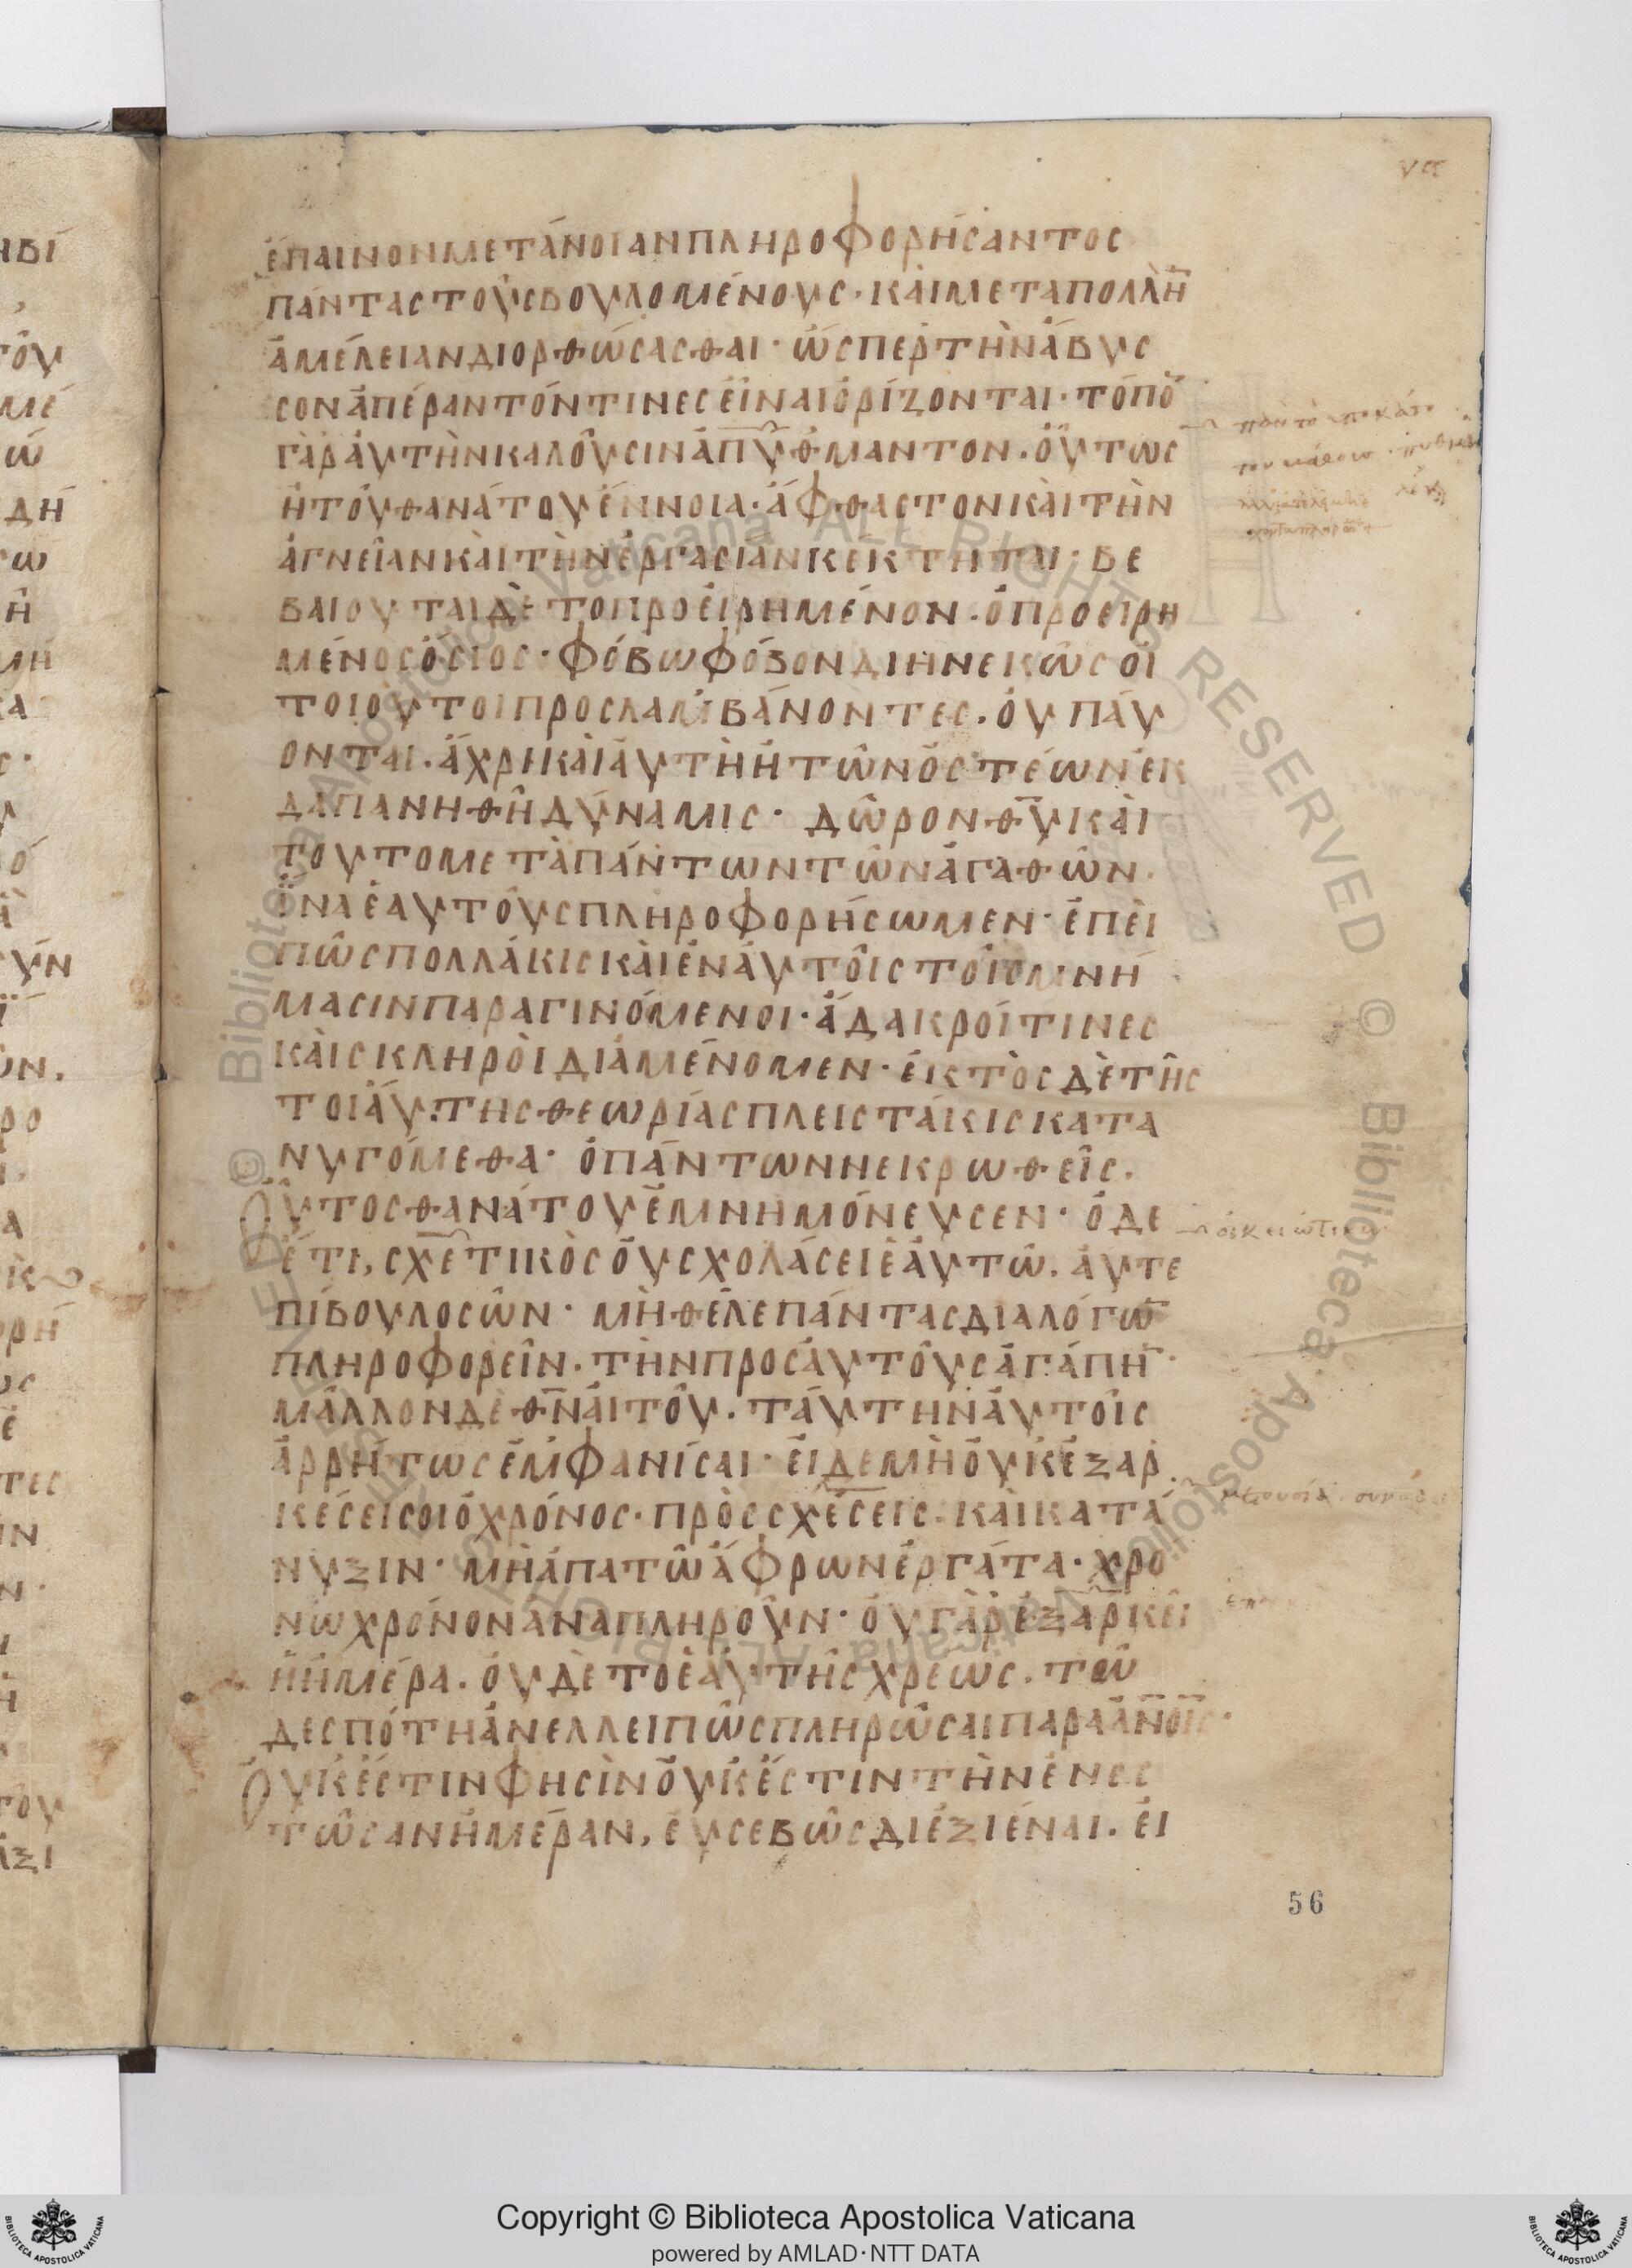 ἐπαινονμετάνοιανπληροφορήσαντος
πάνταςτοὺςβουλομένους· καιμεταπολλὴ̄
ἀμέλειανδιορθώσασθαι· ὥσπερτὴνἄβυς
σονἀπέραντόντινεςεἶναιὁρίζονται· τόπο̄
γὰραὐτὴνκαλοῦσινἀπύθμαντον. οὕτως
ἡτοῦθανάτουἔννοια· ἄφθαστονκαὶτὴν
ἁγνείανκαὶτὴνἐργασίανκέκτηται· βε
βαιουταιδὲτοπροειρημένον. ὁπροειρη
μένοςὅσιος· φόβωφόβονδιηνεκῶςοἱ
τοιοῦτοιπροσλαμβάνοντες. οὐπαύ
ονται. ἄχρικαὶαὐτὴἡτῶνὀστέωνἐκ
δαπανηθῆδύναμις· δῶρονθ̄ῡκαὶ
τουτομετὰπάντωντῶνἀγαθῶν.
ἵναἑαυτοὺςπληροφορήσωμεν· ἐπεὶ
πῶςπολλάκιςκαὶἐναὐτοῖςτοῖςμνή
μασινπαραγινόμενοι· ἀδακροίτινες
καὶσκληρὸιδιαμένομεν· ἐκτὸςδὲτῆς
τοιαύτηςθεωρίαςπλειστάκιςκατα
νυγόμεθα· ὁπάντωννεκρωθεῖς.
Οὗτοςθανάτουἐμνημόνευσεν· ὁδε
ἔτι, σχετικὸςοὐσχολάσειἑαυτῶ. αὐτε
πίβουλοςὢν· μὴθέλεπάνταςδιαλόγω̄
πληροφορεῖν. τὴνπροςαὐτοὺςἀγάπη̄·
μᾶλλονδὲθ̄ν̄αἰτοῦ. ταύτηναὐτοῖς
ἀρρήτωςἐμφανίσαι· εἰδεμὴοὐκἐξαρ
κέσεισοιὁχρόνος· πρὸςσχέσεις. καὶκατά
νυξιν· μὴἀπατῶἄφρωνἐργάτα· χρο
νωχρόνονἀναπληροῦν· οὐγὰρἐξαρκεῖ
ἡἡμέρα. οὐδὲτοἑαυτῆςχρεως. τῶ
δεσπότηἀνελλειπῶςπληρῶσαιπαραἀ̄ν̄ο̄ῖ̄ς̄·
Οὐκἔστινφησὶνοὐκἔστιντὴνἐνεσ
τῶσανἡμέραν, εὐσεβῶςδιεξιέναι. εἰ
56
Copyright © Biblioteca Apostolica Vaticana
powered by AMLAD·NTT DATA